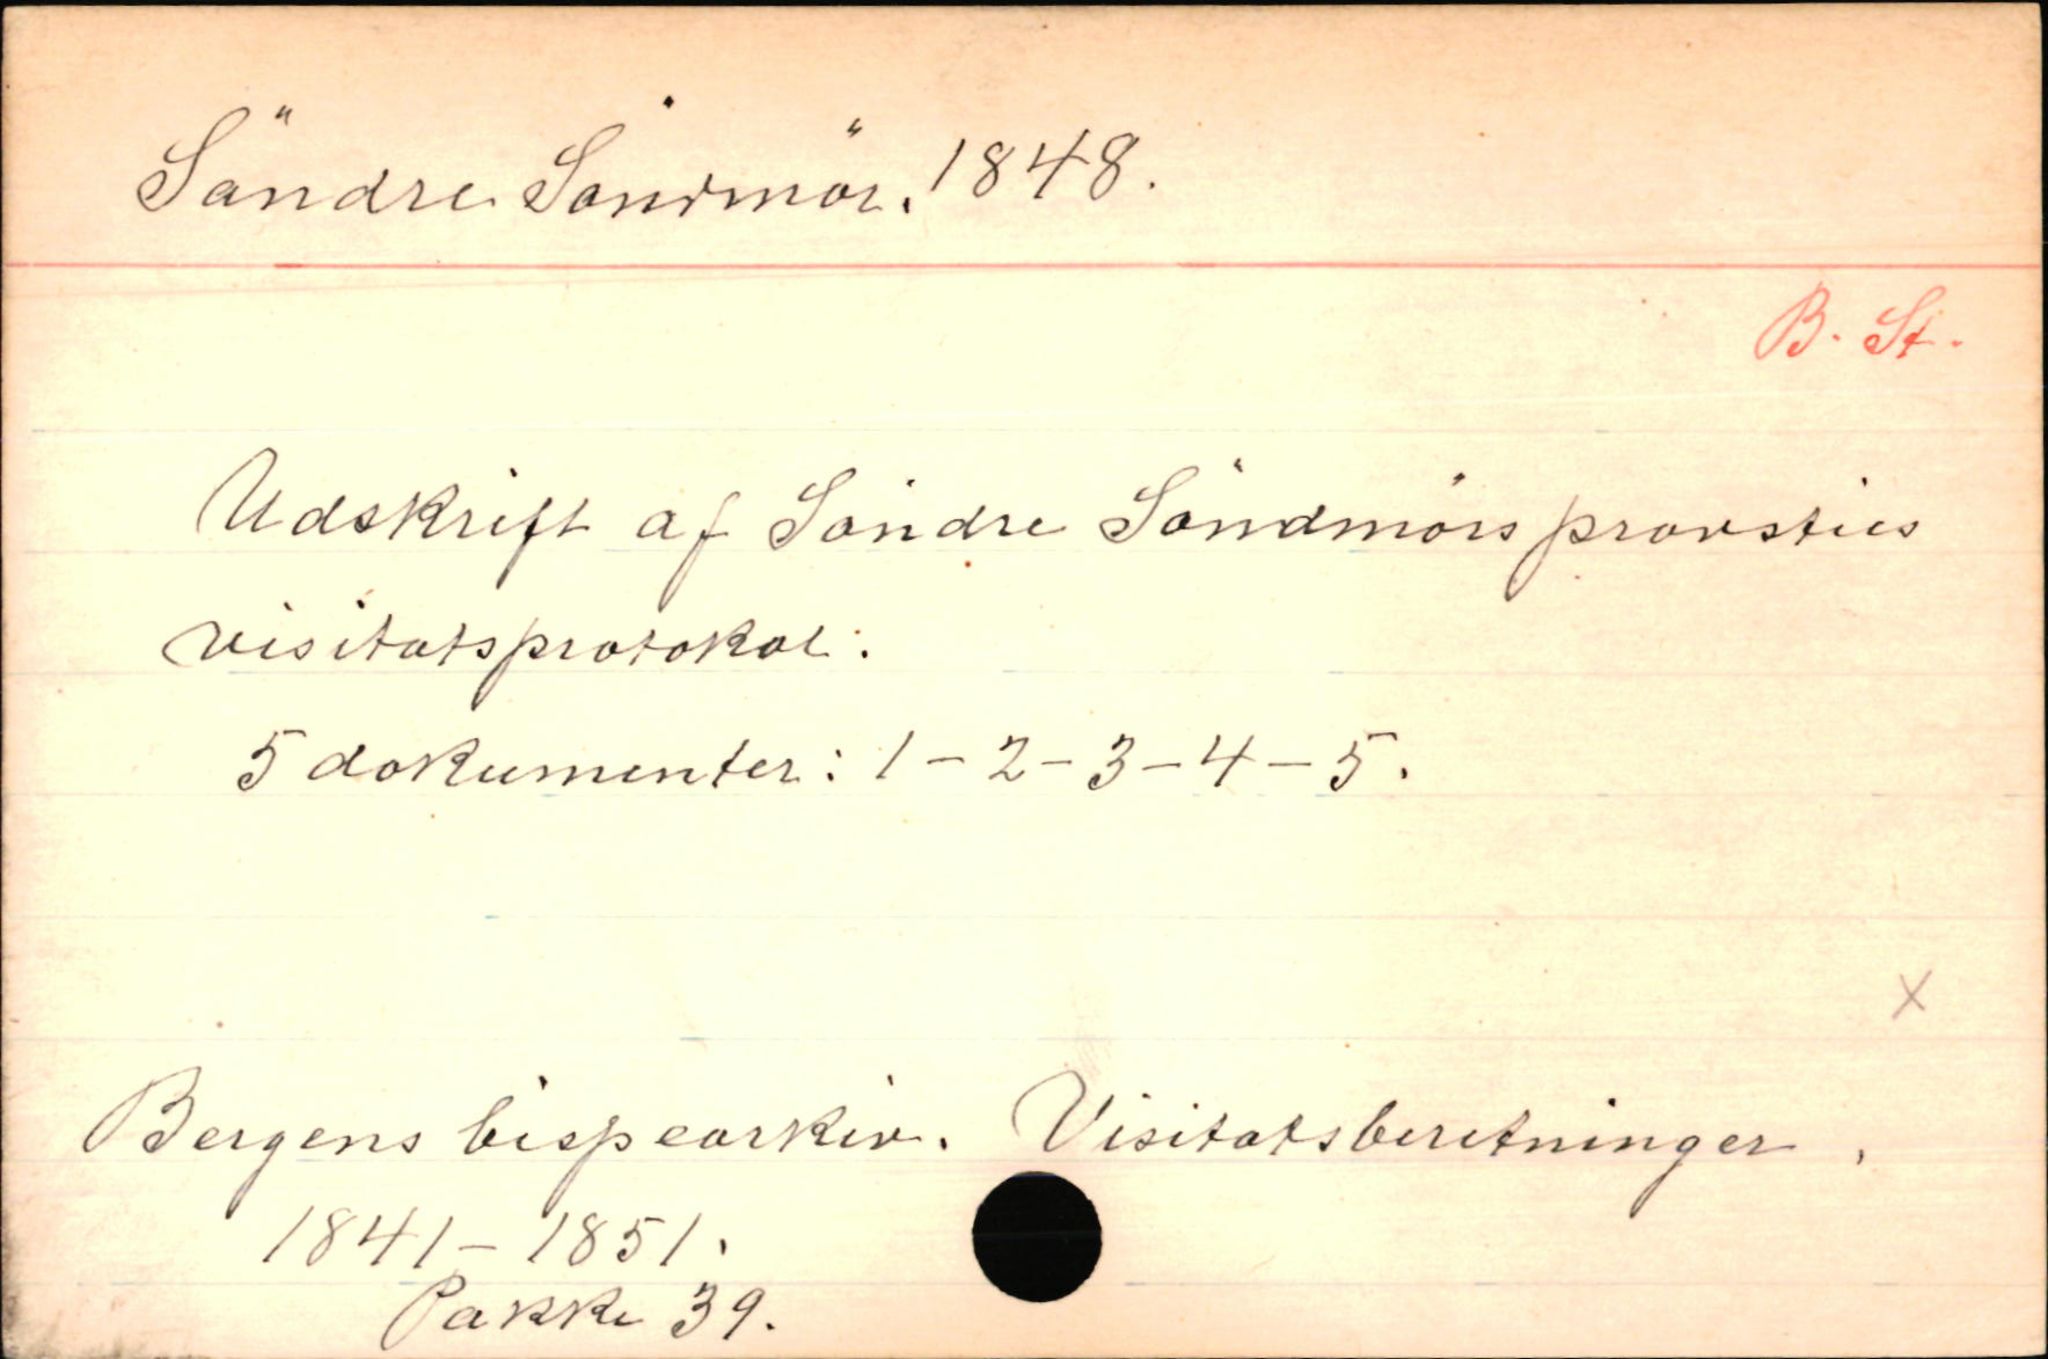 Söndre Söndmör. 1848.
B. St.
Udskrift af Söndre Söndmörs provsties
visitatsprotokol:
5 dokumenter: 1-2-3-4-5.
X
Bergens bispearkiv. Visitatsberetninger,
1841-1851.
Pakke 39.